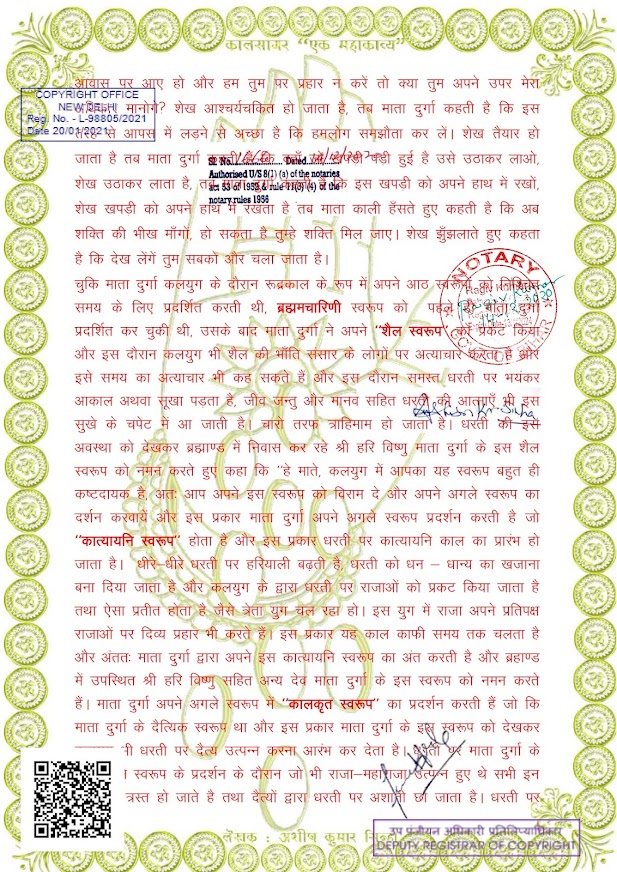 कालसागर "एक महाकाव्य"
आवास पर आए हो और हम तुम पर प्रहार न करें तो क्या तुम अपने उपर मेरा
मानोगे? शेख आश्चर्यचकित हो जाता है, तब माता दुर्गा कहती है कि इस
तरह से आपस में लड़ने से अच्छा है कि हमलोग समझौता कर लें। शेख तैयार हो
जाता है तब माता दुर्गा कहती है कि खपड़ी पड़ी हुई है उसे उठाकर लाओ,
शेख उठाकर लाता है, तब कि इस खपड़ी को अपने हाथ में रखो,
शेख खपड़ी को अपने हाथ में रखता है तब माता काली हँसते हुए कहती है कि अब
शक्ति की भीख माँगो, हो सकता है तुम्हे शक्ति मिल जाए। शेख झुँझलाते हुए कहता
है कि देख लेंगें तुम सबको और चला जाता है।
चुकि माता दुर्गा कलयुग के दौरान रूद्रकाल के रूप में अपने आठ स्वरूप को निश्चित
समय के लिए प्रदर्शित करती थी, ब्रह्मचारिणी स्वरूप को पहले ही माता दुर्गा
प्रदर्शित कर चुकी थी, उसके बाद माता दुर्गा ने अपने "शैल स्वरूप" को प्रकट किया
और इस दौरान कलयुग भी शैल की भाँति संसार के लोगों पर अत्याचार करता है और
इसे समय का अत्याचार भी कह सकते है और इस दौरान समस्त धरती पर भयंकर
आकाल अथवा सूखा पड़ता है, जीव जन्तु और मानव सहित धरती की आताएँ भी इस
सुखे के चपेट में आ जाती है। चारो तरफ त्राहिमाम हो जाता है। धरती की इस
अवस्था को देखकर ब्रह्माण्ड में निवास कर रहे श्री हरि विष्णु माता दुर्गा के इस शैल
स्वरूप को नमन करते हुए कहा कि "हे माते, कलयुग में आपका यह स्वरूप बहुत ही
कष्टदायक है, अतः आप अपने इस स्वरूप को विराम दे और अपने अगले स्वरूप का
दर्शन करवायें और इस प्रकार माता दुर्गा अपने अगले स्वरूप प्रदर्शन करती है जो
"कात्यायनि स्वरूप" होता है और इस प्रकार धरती पर कात्यायनि काल का प्रारंभ हो
जाता है। धीरे-धीरे धरती पर हरियाली बढ़ती है, धरती को धन – धान्य का खजाना
बना दिया जाता है और कलयुग के द्वारा धरती पर राजाओं को प्रकट किया जाता है
तथा ऐसा प्रतीत होता है जैसे त्रेता युग चल रहा हो। इस युग में राजा अपने प्रतिपक्ष
राजाओं पर दिव्य प्रहार भी करते हैं। इस प्रकार यह काल काफी समय तक चलता है
और अंततः माता दुर्गा द्वारा अपने इस कात्यायनि स्वरूप का अंत करती है और ब्रहाण्ड
में उपस्थित श्री हरि विष्णु सहित अन्य देव माता दुर्गा के इस स्वरूप को नमन करते
हैं। माता दुर्गा अपने अगले स्वरूप में "कालकृत स्वरूप" का प्रदर्शन करती हैं जो कि
माता दुर्गा के दैत्यिक स्वरूप था और इस प्रकार माता दुर्गा के इस स्वरूप को देखकर
धरती पर दैत्य उत्पन्न करना आरंभ कर देता है। माता दुर्गा के
स्वरूप के प्रदर्शन के दौरान जो भी राजा-महाराजा उत्पन्न हुए थे सभी इन
त्रस्त हो जाते है तथा दैत्यों द्वारा धरती पर अशांती छा जाता है। धरती पर
COPYRIGHT OFFICE
NEW DELHI
Reg. No. - L-98805/2021
Date 20/01/2021
Sl No. Dated
Authorised U/S 8(1) (a) of the notaries
act 53 of 1952 & rule 11(3) (4) of the
notary rules 1956
NOTARY
लेखक : अशीष कुमार
उप पंजीयन अधिकारी प्रतिलिप्याधिकार
DEPUTY REGISTRAR OF COPYRIGHT